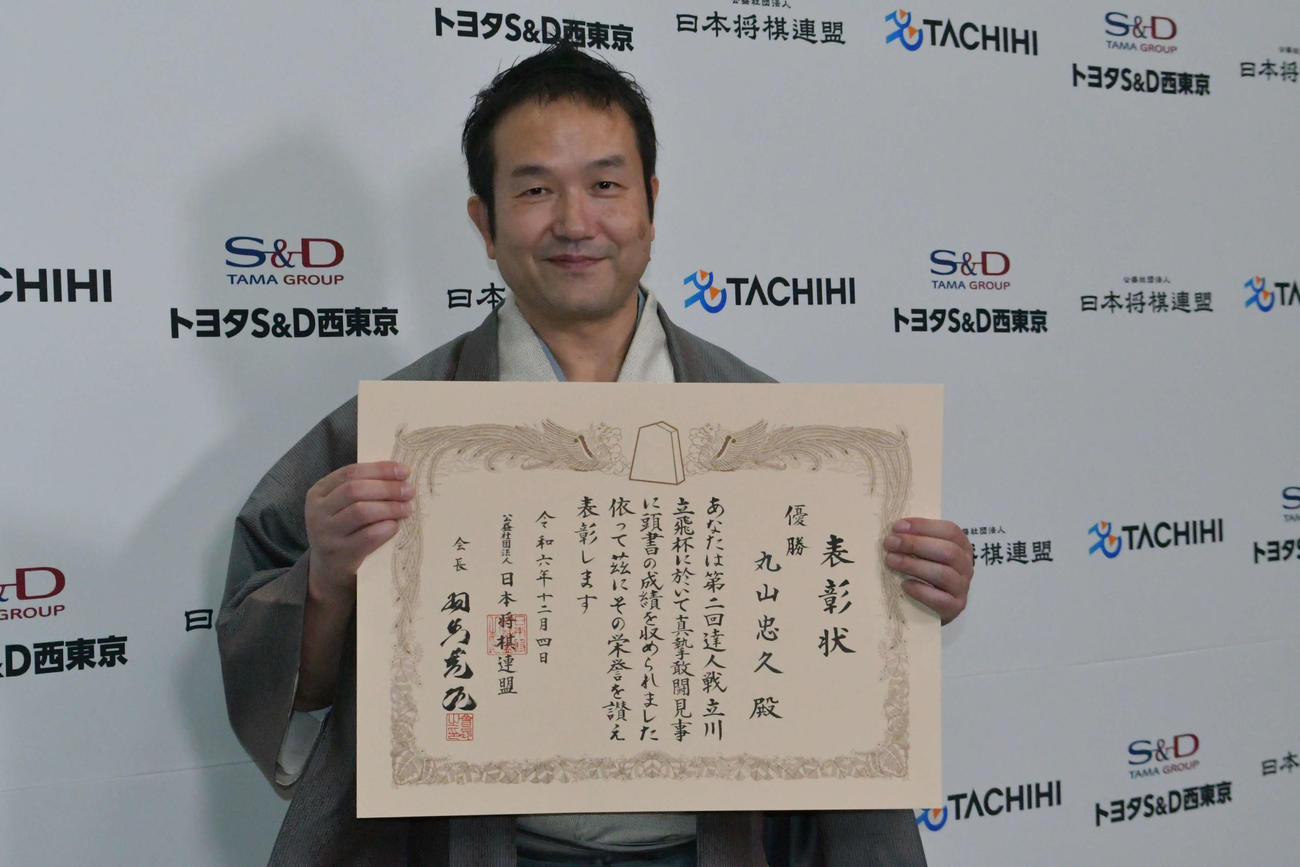 トヨタS&D西東京
公益社団法人
日本将棋連盟
TACHIHI
S&D
TAMA GROUP
トヨタS&D西東京
日本将
CHIHI
S&D
TAMA GROUP
トヨタS&D西東京
日本
TACHIHI
S&D
TAMA GROUP
トヨタS&D西東京
公益社団法人
日本将棋連盟
TA
表彰状
優勝
丸山忠久殿
あなたは第二回達人戦立川
立飛杯に於いて真摯敢闘見事
に頭書の成績を収められました
依って茲にその栄誉を讃え
表彰します
令和六年十二月四日
公益社団法人 日本将棋連盟
会長 羽生善治
社団法人
将棋連盟
TACHIHI
S&
トヨタS
D
GROUP
&D西東京
日
TACHIHI
S&D
TAMA GROUP
トヨタS&D西東京
日本